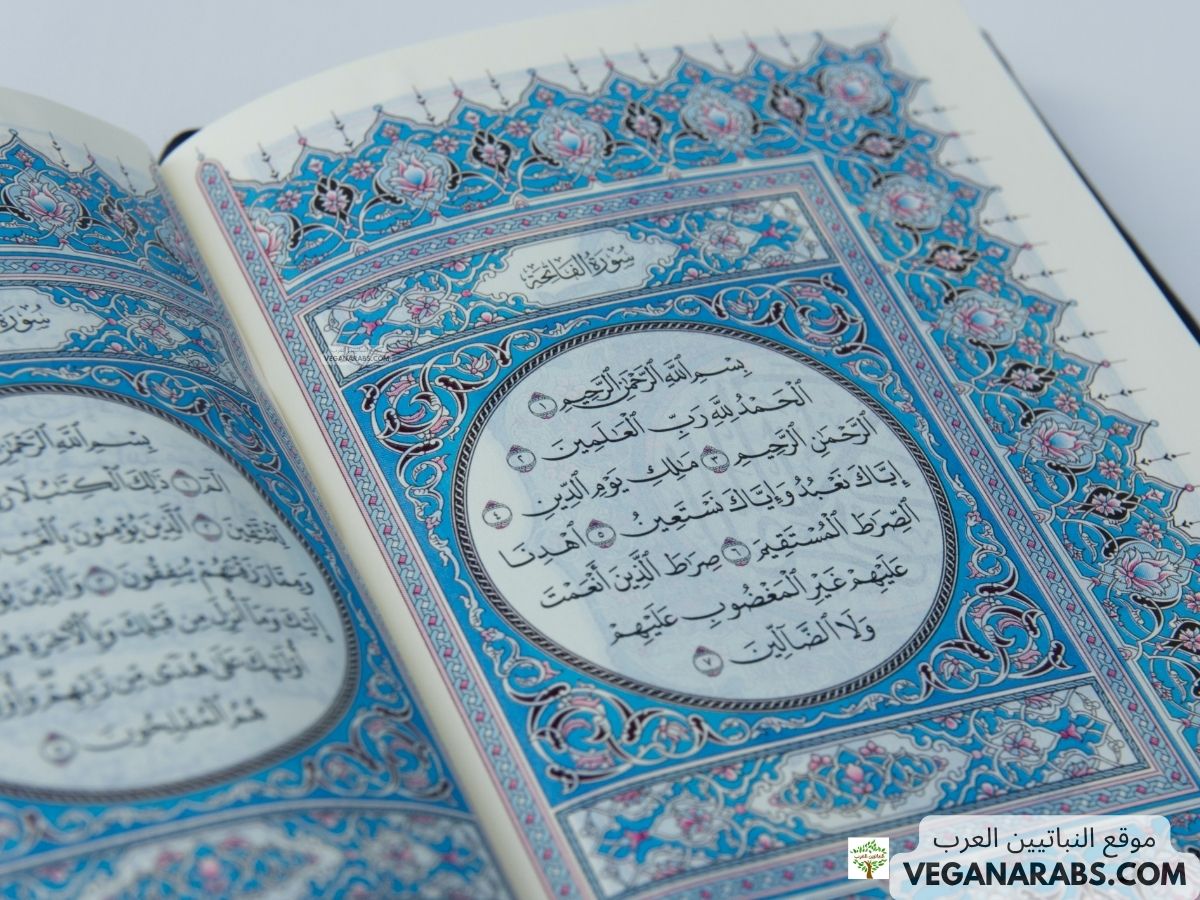 سُورَةُ الفَاتِحَةِ
بِسْمِ ٱللَّهِ ٱلرَّحْمَٰنِ ٱلرَّحِيمِ ١
ٱلْحَمْدُ لِلَّهِ رَبِّ ٱلْعَٰلَمِينَ ٢
ٱلرَّحْمَٰنِ ٱلرَّحِيمِ ٣ مَٰلِكِ يَوْمِ ٱلدِّينِ ٤
إِيَّاكَ نَعْبُدُ وَإِيَّاكَ نَسْتَعِينُ ٥ ٱهْدِنَا
ٱلصِّرَٰطَ ٱلْمُسْتَقِيمَ ٦ صِرَٰطَ ٱلَّذِينَ أَنْعَمْتَ
عَلَيْهِمْ غَيْرِ ٱلْمَغْضُوبِ عَلَيْهِمْ
وَلَا ٱلضَّآلِّينَ ٧
سُورَةُ
بِسْمِ ٱللَّهِ ٱلرَّحْمَٰنِ
الٓمٓ ١ ذَٰلِكَ ٱلْكِتَٰبُ لَا
لِّلْمُتَّقِينَ ٢ ٱلَّذِينَ يُؤْمِنُونَ بِٱلْغَيْبِ
وَمِمَّا رَزَقْنَٰهُمْ يُنفِقُونَ ٣ وَٱلَّذِينَ
إِلَيْكَ وَمَآ أُنزِلَ مِن قَبْلِكَ وَبِٱلْءَاخِرَةِ
أُو۟لَٰٓئِكَ عَلَىٰ هُدًى مِّن رَّبِّهِمْ
هُمُ ٱلْمُفْلِحُونَ ٥
VEGANARABS.COM
موقع النباتيين العرب
VEGANARABS.COM